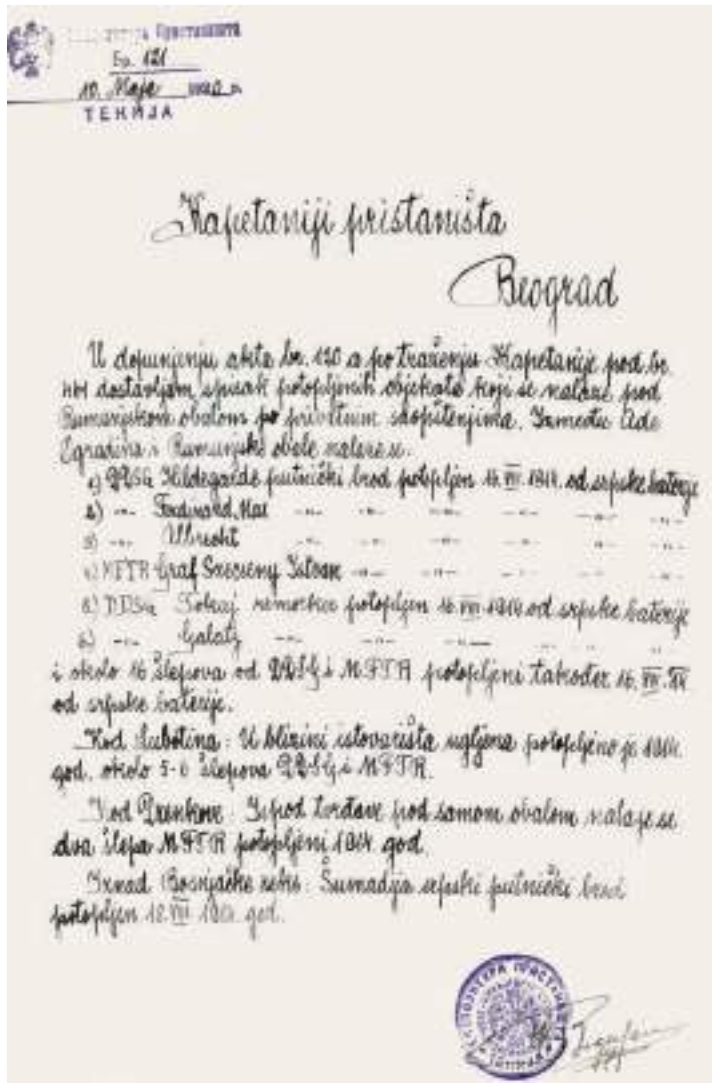 Пристаништа
Бр. 121
10. Maja
ТЕКИЈА
Kapetaniji pristaništa
Beograd
U dopunjenju akta br. 120 a po traženju Kapetanije pod br.
dostavljam spisak potopljenih objekata koji se nalaze pod
Rumunjskom obalom po privatnim saopštenjima. Između Ade
i Rumunjske obale nalaze se:
1) DDSG Hildegarde putnički brod potopljen 16. VIII. 1914. od srpske baterije
2) -"- Ferdinand Max -"- -"- -"- -"- -"-
3) -"- Albrecht -"- -"- -"- -"- -"-
4) MFTR Graf Istvan -"- -"- -"- -"- -"-
5) DDSG Tokaj remorker potopljen 16. VIII 1914 od srpske baterije
6) -"- Galatz -"- -"- -"- -"- -"-
i okolo 16 šlepova od DDSG i MFTR potopljeni također 16. VIII.
od srpske baterije.
Kod : U blizini istovarišta ugljena potopljeno je 1914.
god. okolo 5-6 šlepova DDSG i MFTR.
Kod Drenkove: Ispod tvrđave pod samom obalom nalaze se
dva šlepa MFTR potopljeni 1914. god.
Iznad Bosnjačke reke: Šumadija srpski putnički brod
potopljen 12. VIII god.
ПРИСТАНИШТА